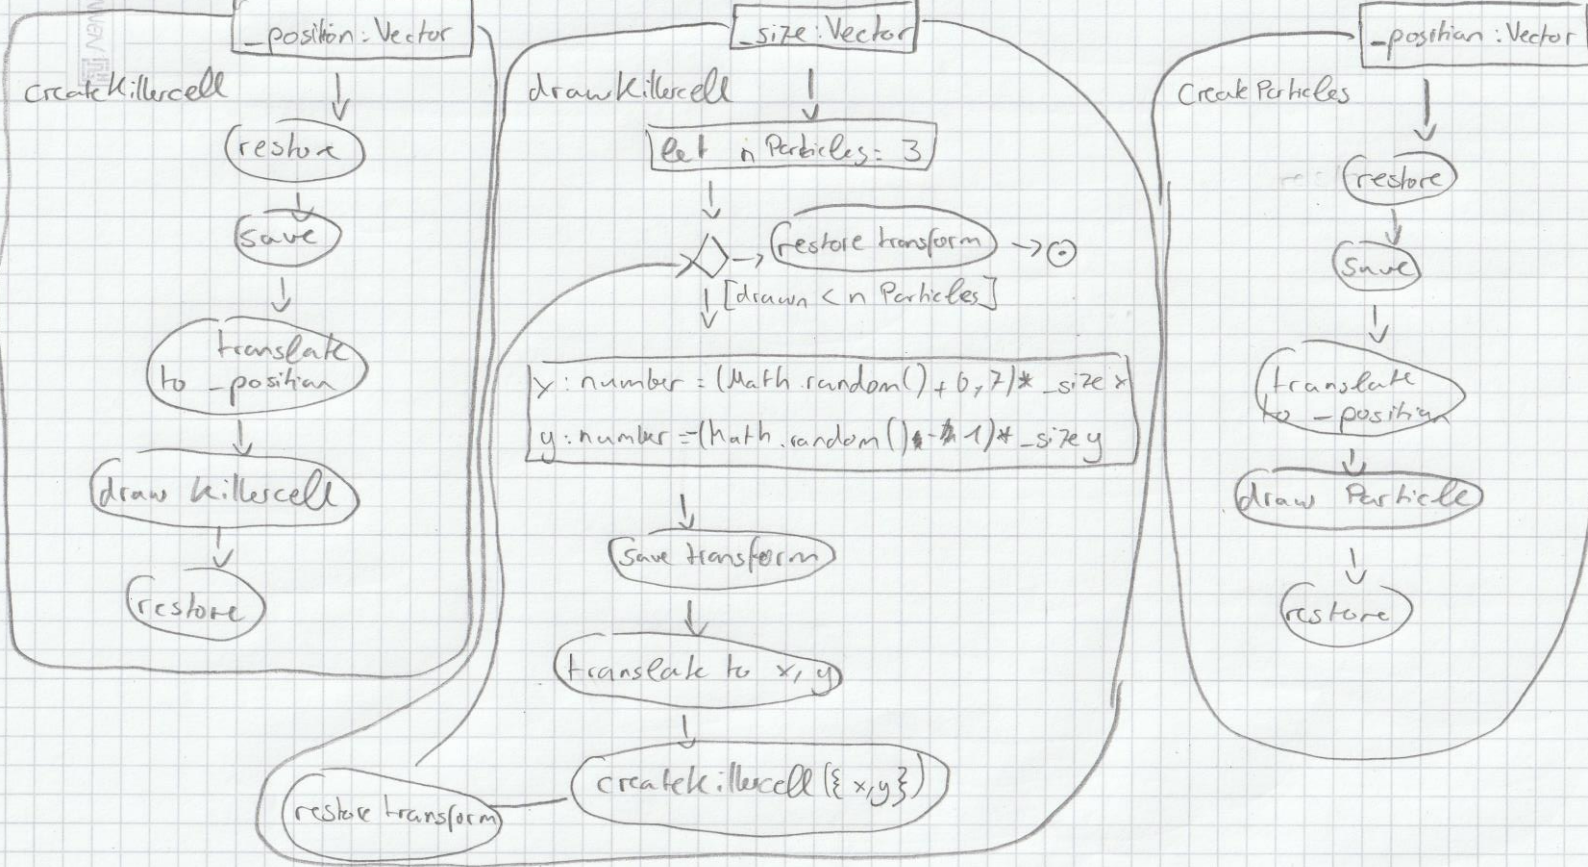 _position: Vector
createKillercell
restore
save
translate
to _position
draw Killercell
restore
_size: Vector
drawKillercell
let nParticles = 3
restore transform
[drawn < n Particles]
x: number = (Math.random() + 0,7)* _size x
y: number = -(Math.random() - 1)* _size y
save transform
translate to x, y
createKillercell({x,y})
restore transform
_position: Vector
Create Particles
restore
save
translate
to _position
draw Particle
restore